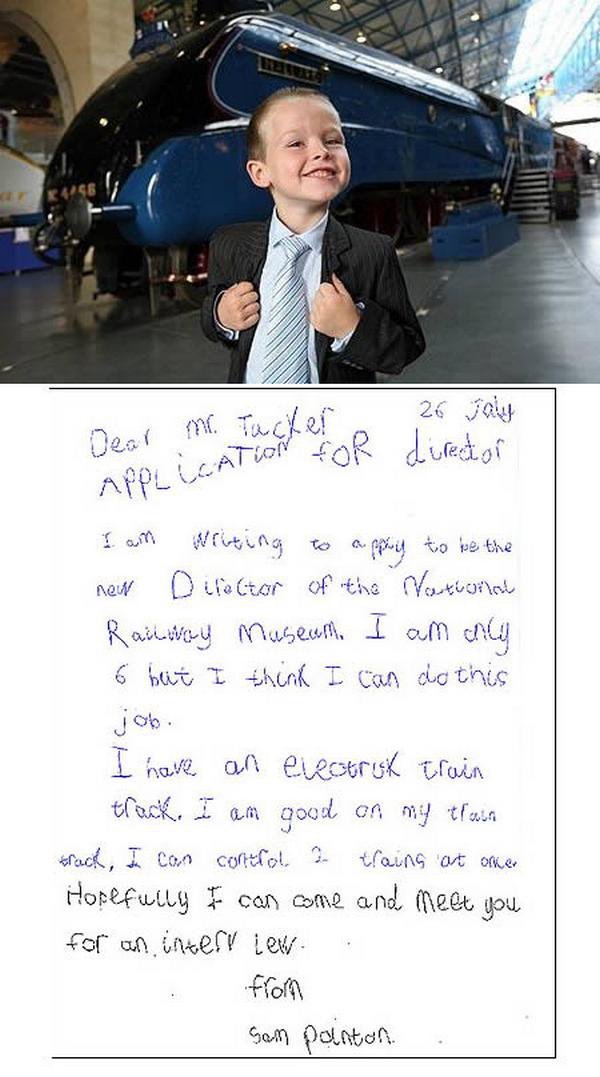 MALLARD
4468
26 July
Dear Mr. Tucker
APPLiCATION fOR director
I am writing to apply to be the
new Director of the National
Railway Museum. I am only
6 but I think I can do this
job.
I have an electruk train
track. I am good on my train
track, I can control 2 trains at once
Hopefully I can come and Meet you
for an interview.
from
Sam pointon.